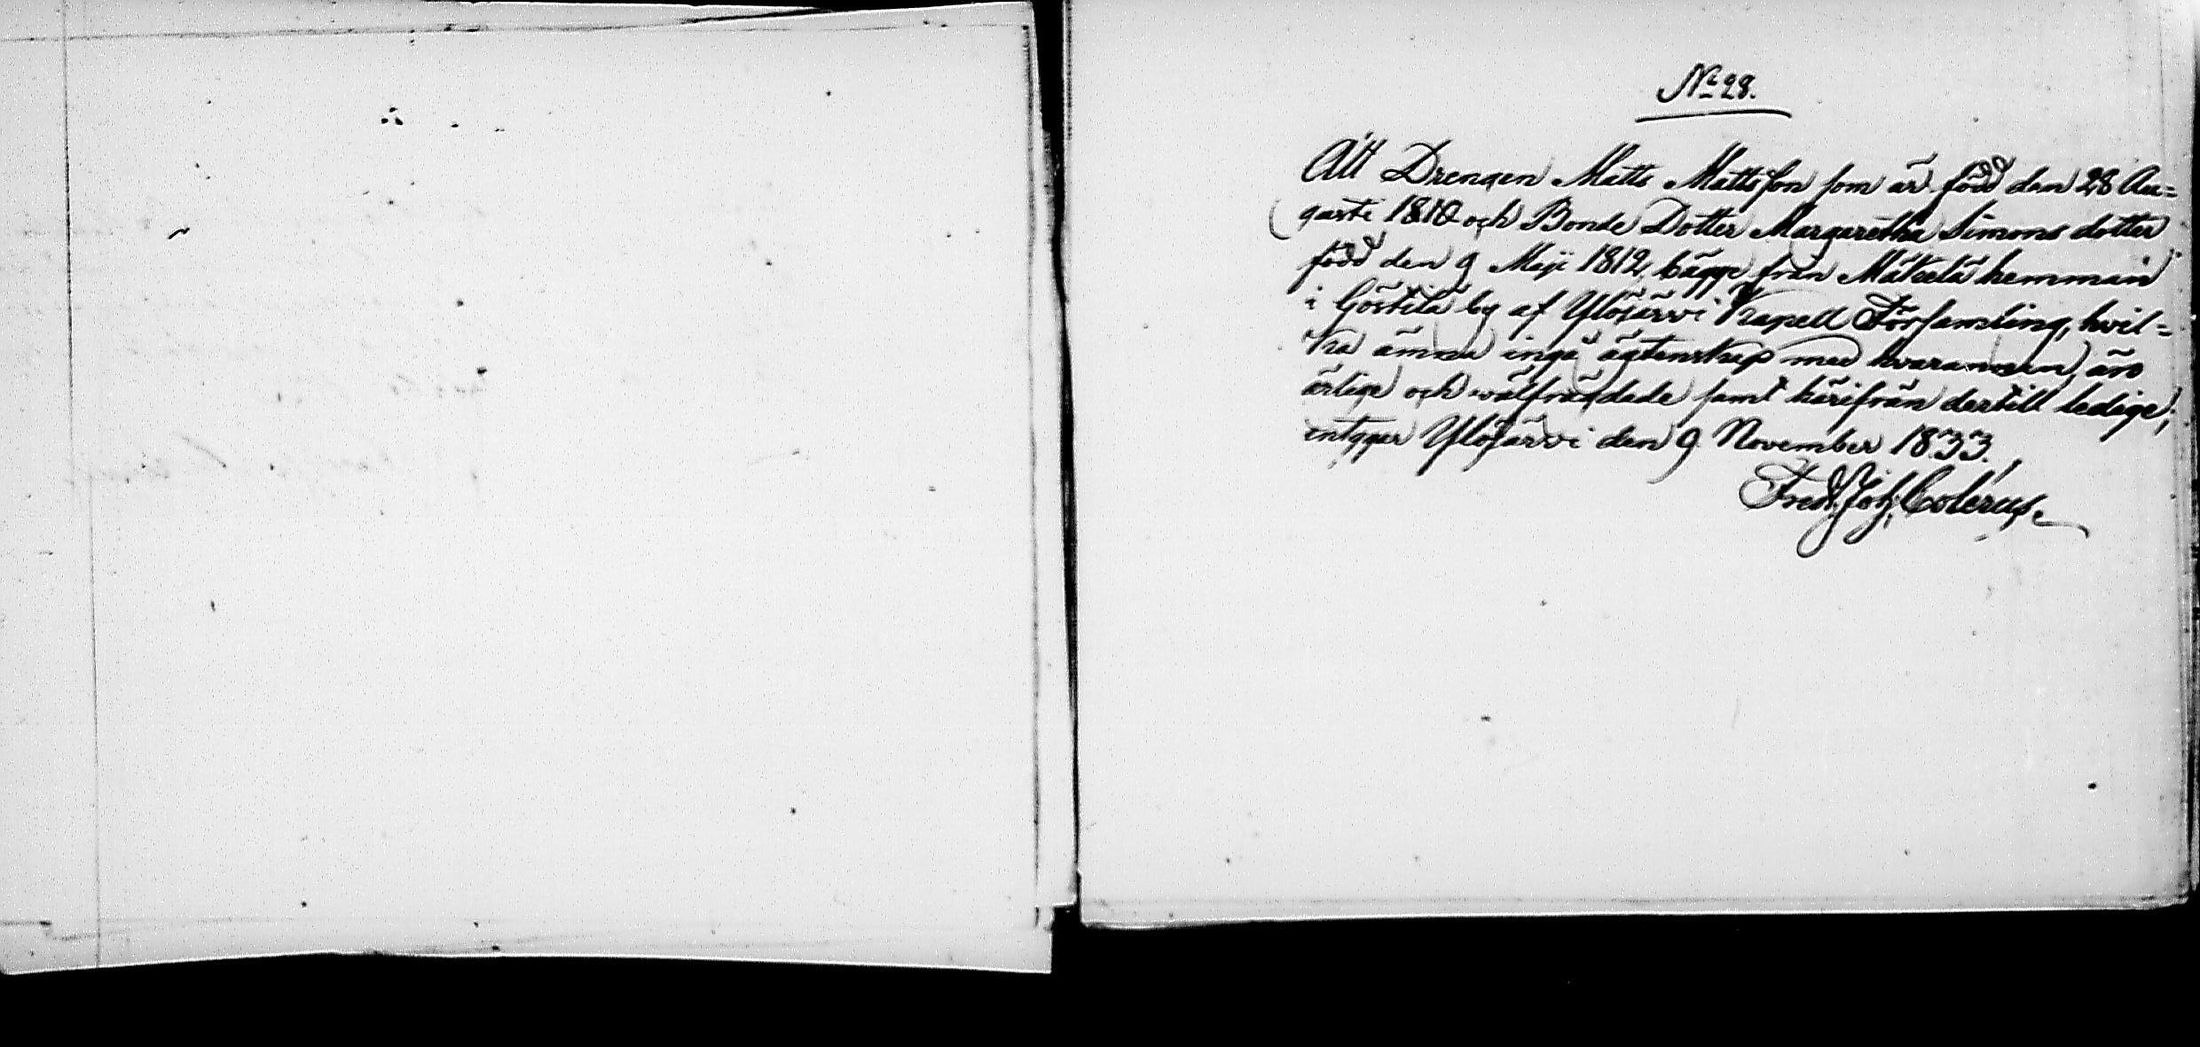 No 28.
Att Drengen Matts Mattsson som är född den 28 Au=
gusti 1810 och Bonde Dotter Margaretha Simons dotter
född den 9 Maji 1812, bägge från Mätelä hemman
i Göstilä by af Ylöjärvi Kapell Församling, hvil=
ka ämna ingå ägtenskap med hvarannan, äro
ärlige och välfräjdade samt härifrån dertill ledige;
intygar Ylöjärvi den 9 November 1833.
Fredr. Joh. Colérus.